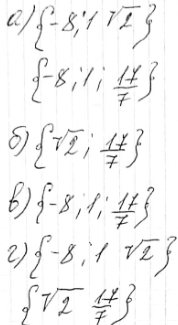 а) {-8; 1 √2}
{-8; 1; 17/7}
б) {√2; 17/7}
в) {-8; 1; 17/7}
г) {-8; 1 √2}
{√2 17/7}